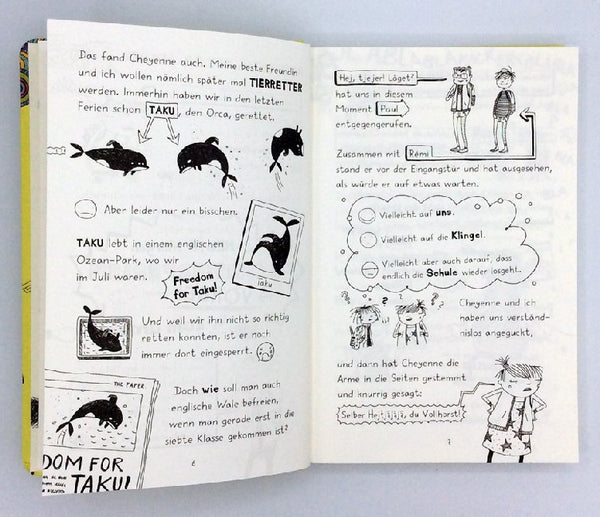 Das fand Cheyenne auch. Meine beste Freundin
und ich wollen nämlich später mal TIERRETTER
werden. Immerhin haben wir in den letzten
Ferien schon TAKU, den Orca, gerettet.
Aber leider nur ein bisschen.
TAKU lebt in einem englischen
Ozean-Park, wo wir
im Juli waren.
Freedom
for Taku!
Taku
Und weil wir ihn nicht so richtig
retten konnten, ist er noch
immer dort eingesperrt.
THE PAPER
Doch wie soll man auch
englische Wale befreien,
wenn man gerade erst in die
siebte Klasse gekommen ist?
DOM FOR
TAKU!
6
Hej, tjejer! Läget?
hat uns in diesem
Moment Paul
entgegengerufen.
Zusammen mit Rémi
stand er vor der Eingangstür und hat ausgesehen,
als würde er auf etwas warten.
Vielleicht auf uns.
Vielleicht auf die Klingel.
Vielleicht aber auch darauf, dass
endlich die Schule wieder losgeht.
Cheyenne und ich
haben uns verständ-
nislos angeguckt,
und dann hat Cheyenne die
Arme in die Seiten gestemmt
und knurrig gesagt:
Selber Hejjäjäjä, du Vollhorst!
7